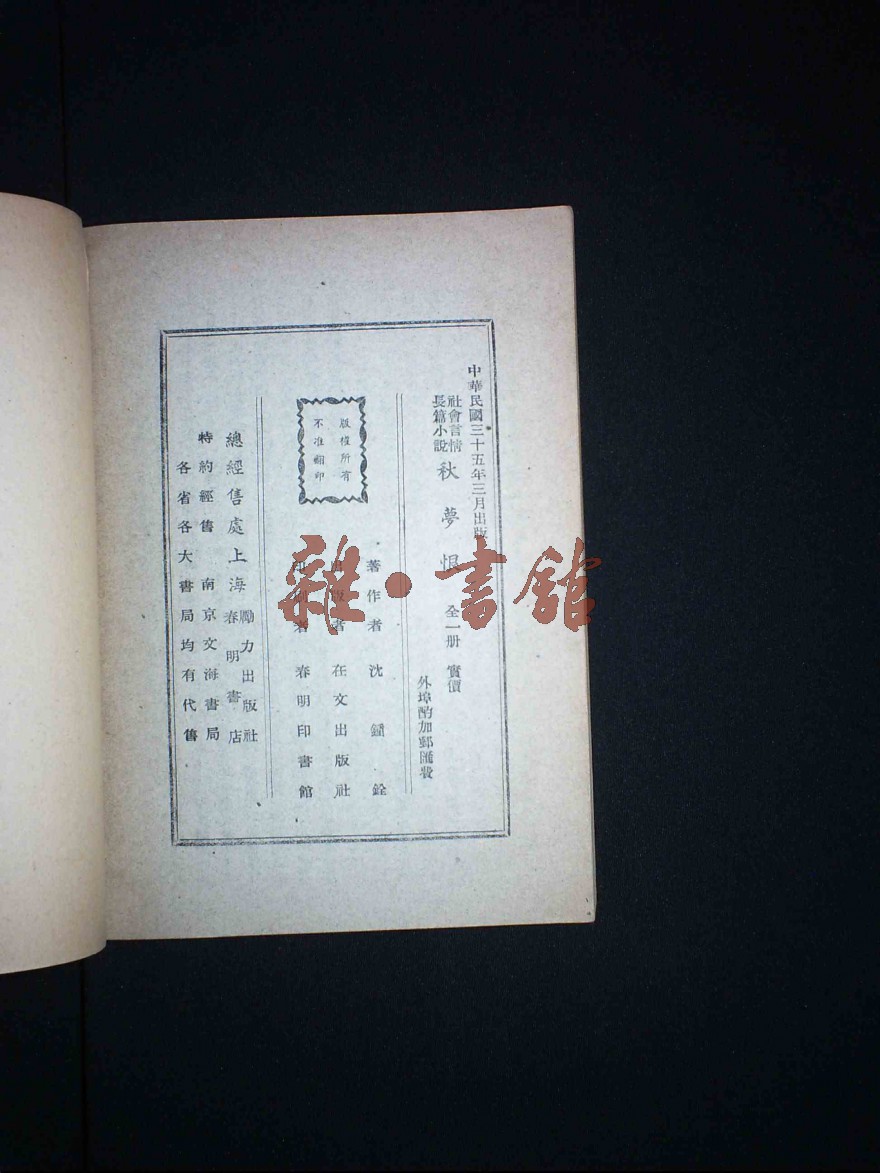 中華民國三十五年三月出版
社會言情
長篇小説
秋夢恨 全一册 實價
外埠酌加郵匯費
著作者 沈鍾銓
出版者 在文出版社
印刷者 春明印書館
版權所有
不准翻印
總經售處上海
勵力出版社
春明書店
特約經售 南京文海書局
各省各大書局均有代售
雜·書館